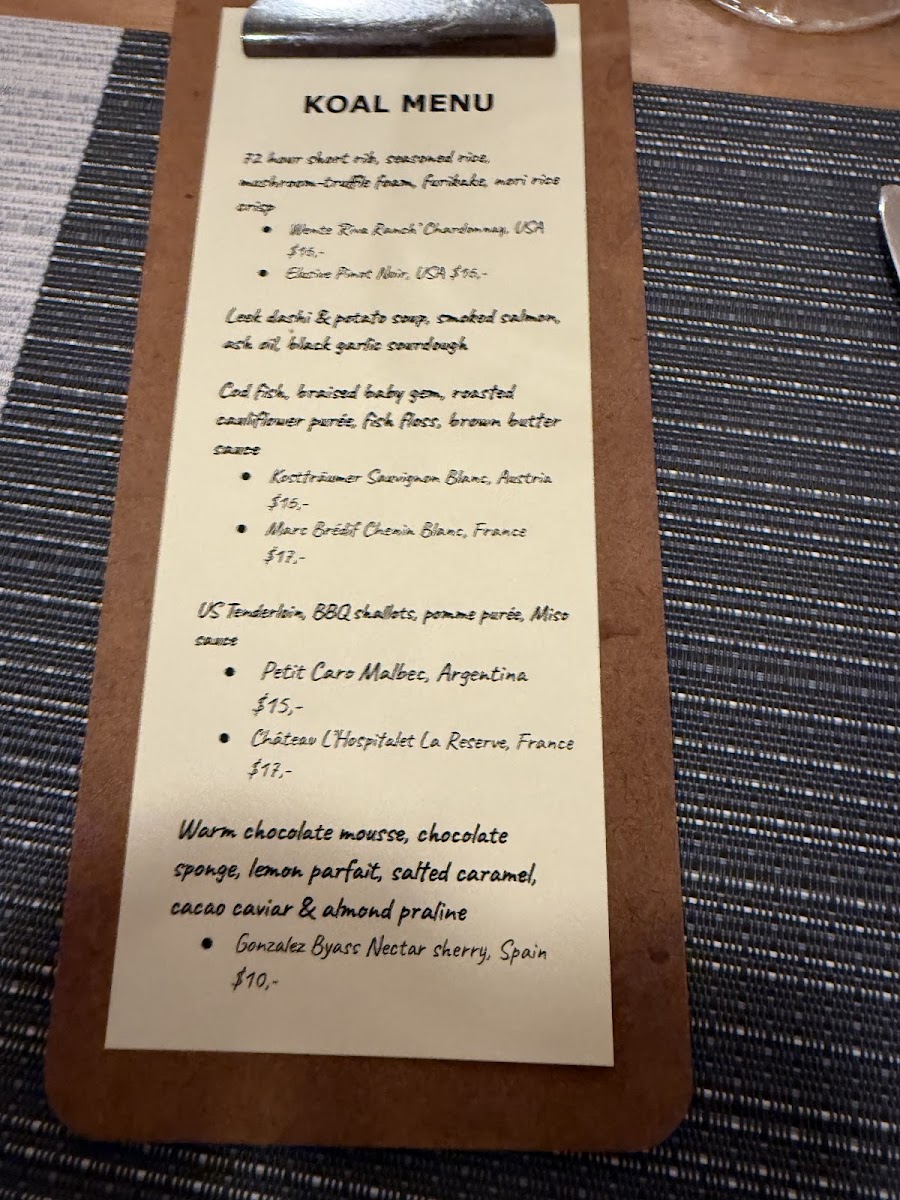 KOAL MENU
72 hour short rib, seasoned rice,
mushroom-truffle foam, furikake, nori rice
crisp
• Wente 'Riva Ranch' Chardonnay, USA
$16,-
• Elusive Pinot Noir, USA $16,-
Leek dashi & potato soup, smoked salmon,
ash oil, black garlic sourdough
Cod fish, braised baby gem, roasted
cauliflower purée, fish floss, brown butter
sauce
• Kostträumer Sauvignon Blanc, Austria
$15,-
• Marc Brédif Chenin Blanc, France
$17,-
US Tenderloin, BBQ shallots, pomme purée, Miso
sauce
• Petit Caro Malbec, Argentina
$15,-
• Château L'Hospitalet La Reserve, France
$17,-
Warm chocolate mousse, chocolate
sponge, lemon parfait, salted caramel,
cacao caviar & almond praline
• Gonzalez Byass Nectar sherry, Spain
$10,-